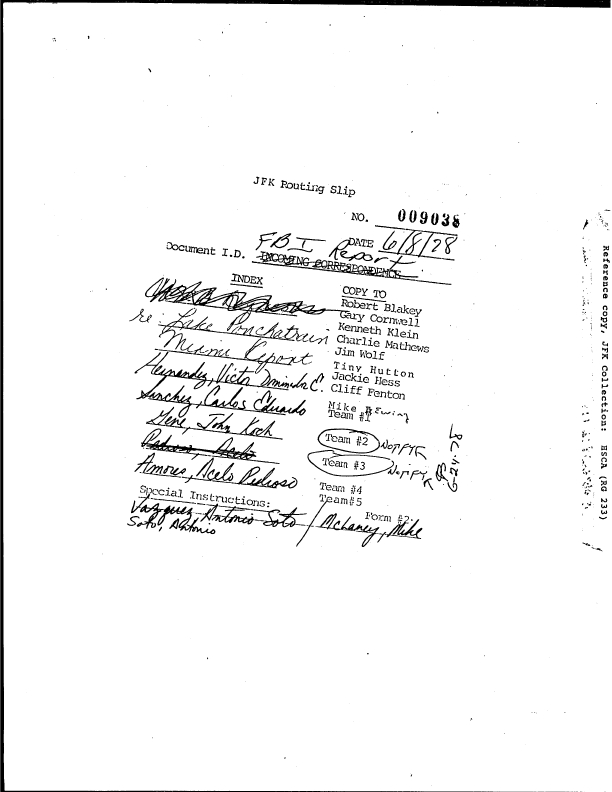 JFK Routing Slip
NO. 009038
Document I.D. FBI Report DATE 6/8/28
INCOMING CORRESPONDENCE
INDEX
re: Lake Ponchatrain
Miami Report
Hernandez, Victor C.
Sanchez, Carlos Eduardo
Gene, John Koch
Pedroso, Acelo
Amores, Acelo Pedroso
COPY TO
Robert Blakey
Gary Cornwell
Kenneth Klein
Charlie Mathews
Jim Wolf
Tiny Hutton
Jackie Hess
Cliff Fenton
Mike Ewing
Team #1
Team #2
Team #3
Team #4
Team #5
6-24-78
Special Instructions:
Form #2:
Vazquez, Antonio Soto / McLaney, Mike
Soto, Antonio
Reference copy, JFK Collection: HSCA (RG 233)